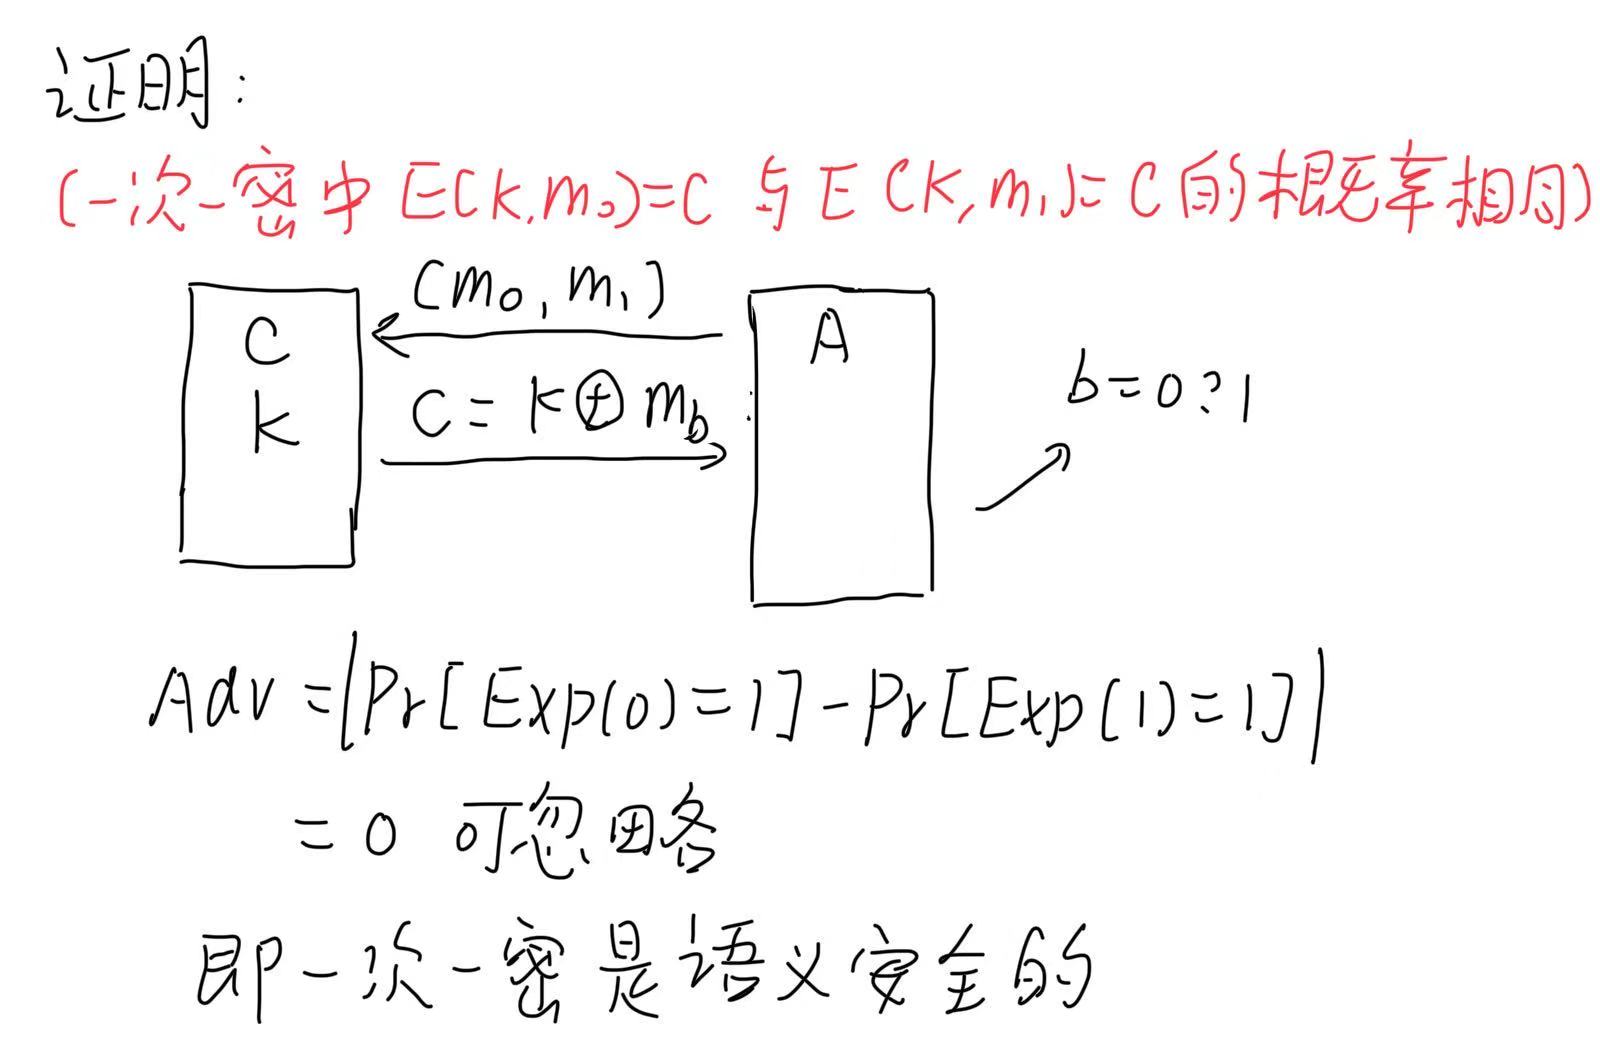 证明:
(一次一密中 E(k,m₀)=C 与 E(k,m₁)=C 的概率相同)
(m₀,m₁)
C
k
A
C = k⊕m_b
b=0?1
Adv=|Pr[Exp(0)=1]-Pr[Exp(1)=1]|
=0 可忽略
即一次一密是语义安全的